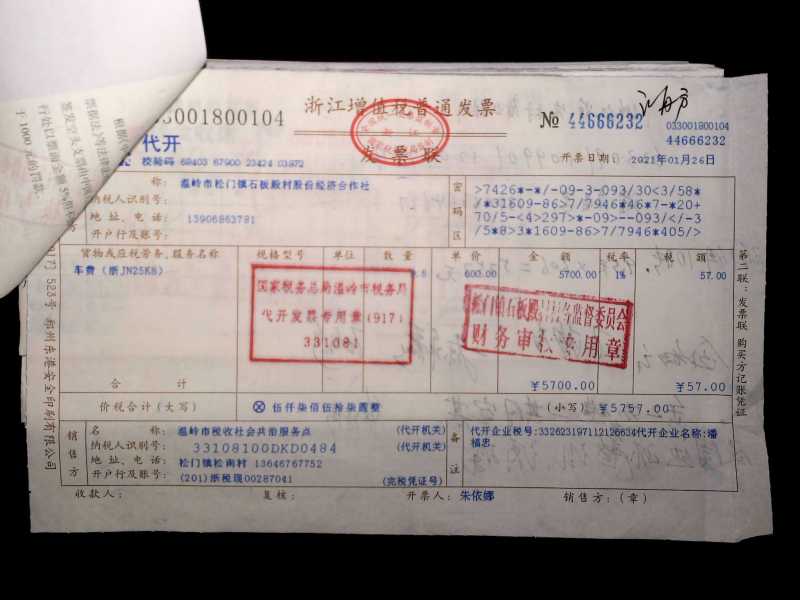 033001800104
浙江增值税普通发票
№ 44666232
033001800104
44666232
代开
发票联
校验码 69403 67900 23424 03972
开票日期 2021年01月26日
称： 温岭市松门镇石板殿村股份经济合作社
纳税人识别号：
地 址、电 话： 13906863781
开户行及账号：
密码区
>7426*-*/-09-3-093/30<3/58*
/*31609-86>7/7946*46*7-*20+
70/5-<4>297>*-09>--093</</-3
/5*8>3*1609-86>7/7946*405/>
货物或应税劳务、服务名称 规格型号 单位 数量 单价 金额 税率 税额
车费（浙JN25K8） 600.00 5700.00 1% 57.00
国家税务总局温岭市税务局
代开发票专用章（917）
331081
财务审 用章
合 计 ¥5700.00 ¥57.00
价税合计（大写） ⊗ 伍仟柒佰伍拾柒圆整 （小写）¥5757.00
销售方
名 称： 温岭市税收社会共治服务点 （代开机关）
纳税人识别号： 33108100DKD0484 （代开机关）
地 址、电 话： 松门镇松南村 13646767752
开户行及账号： (201)浙税现00287041 （完税凭证号）
备注
代开企业税号:332623197112126634代开企业名称:潘
福忠
收款人： 复核： 开票人：朱依娜 销售方：（章）
第二联：发票联 购买方记账凭证